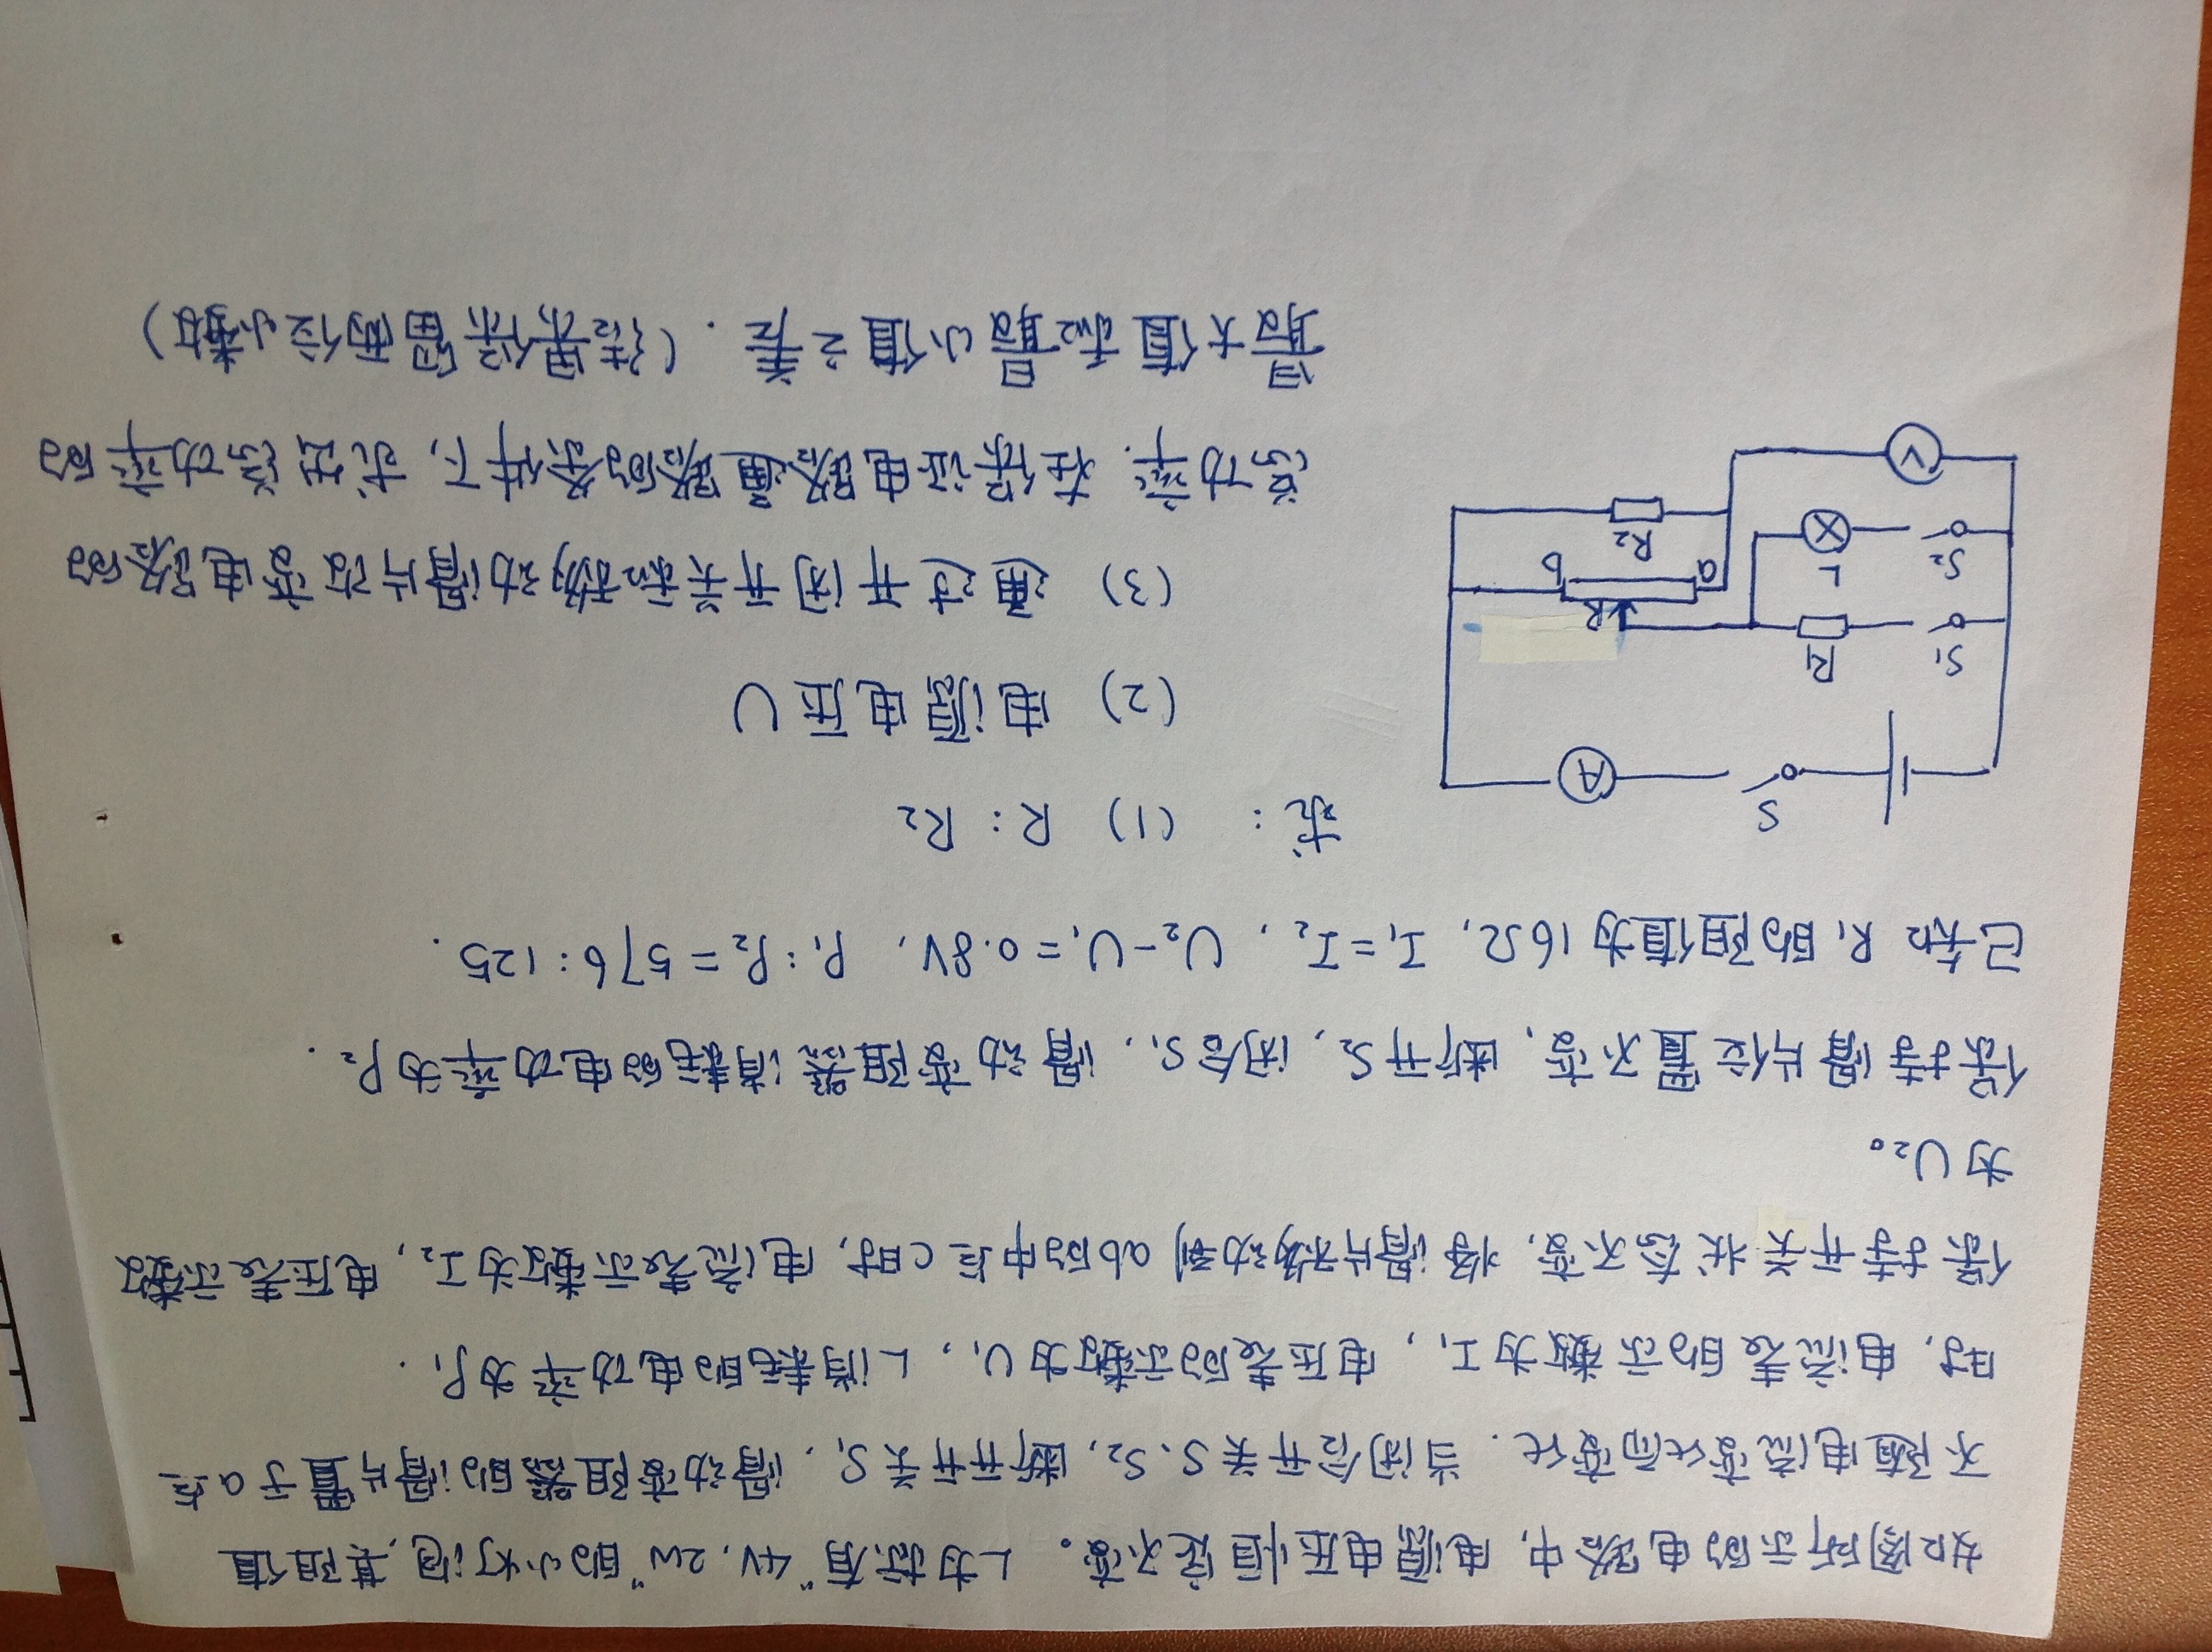 如图所示的电路中,电源电压恒定不变。L为标有"4V,2W"的小灯泡,其阻值
不随电流变化而变化.当闭合开关S、S₂,断开开关S₁,滑动变阻器的滑片置于a点
时,电流表的示数为I₁,电压表的示数为U₁,L消耗的电功率为P₁.
保持开关状态不变,将滑片移动到ab的中点c时,电流表示数为I₂,电压表示数
为U₂。
保持滑片位置不变,断开S₂,闭合S₁,滑动变阻器消耗的电功率为P₂.
已知R₁的阻值为16Ω,I₁=I₂,U₂-U₁=0.8V,P₁:P₂=576:125.
求:(1) R:R₂
(2) 电源电压U
(3) 通过开闭开关和移动滑片改变电路的
总功率.在保证电路通路的条件下,求出总功率的
最大值和最小值之差.(结果保留两位小数)
S
A
S₁
R₁
R
a
b
S₂
L
R₂
V